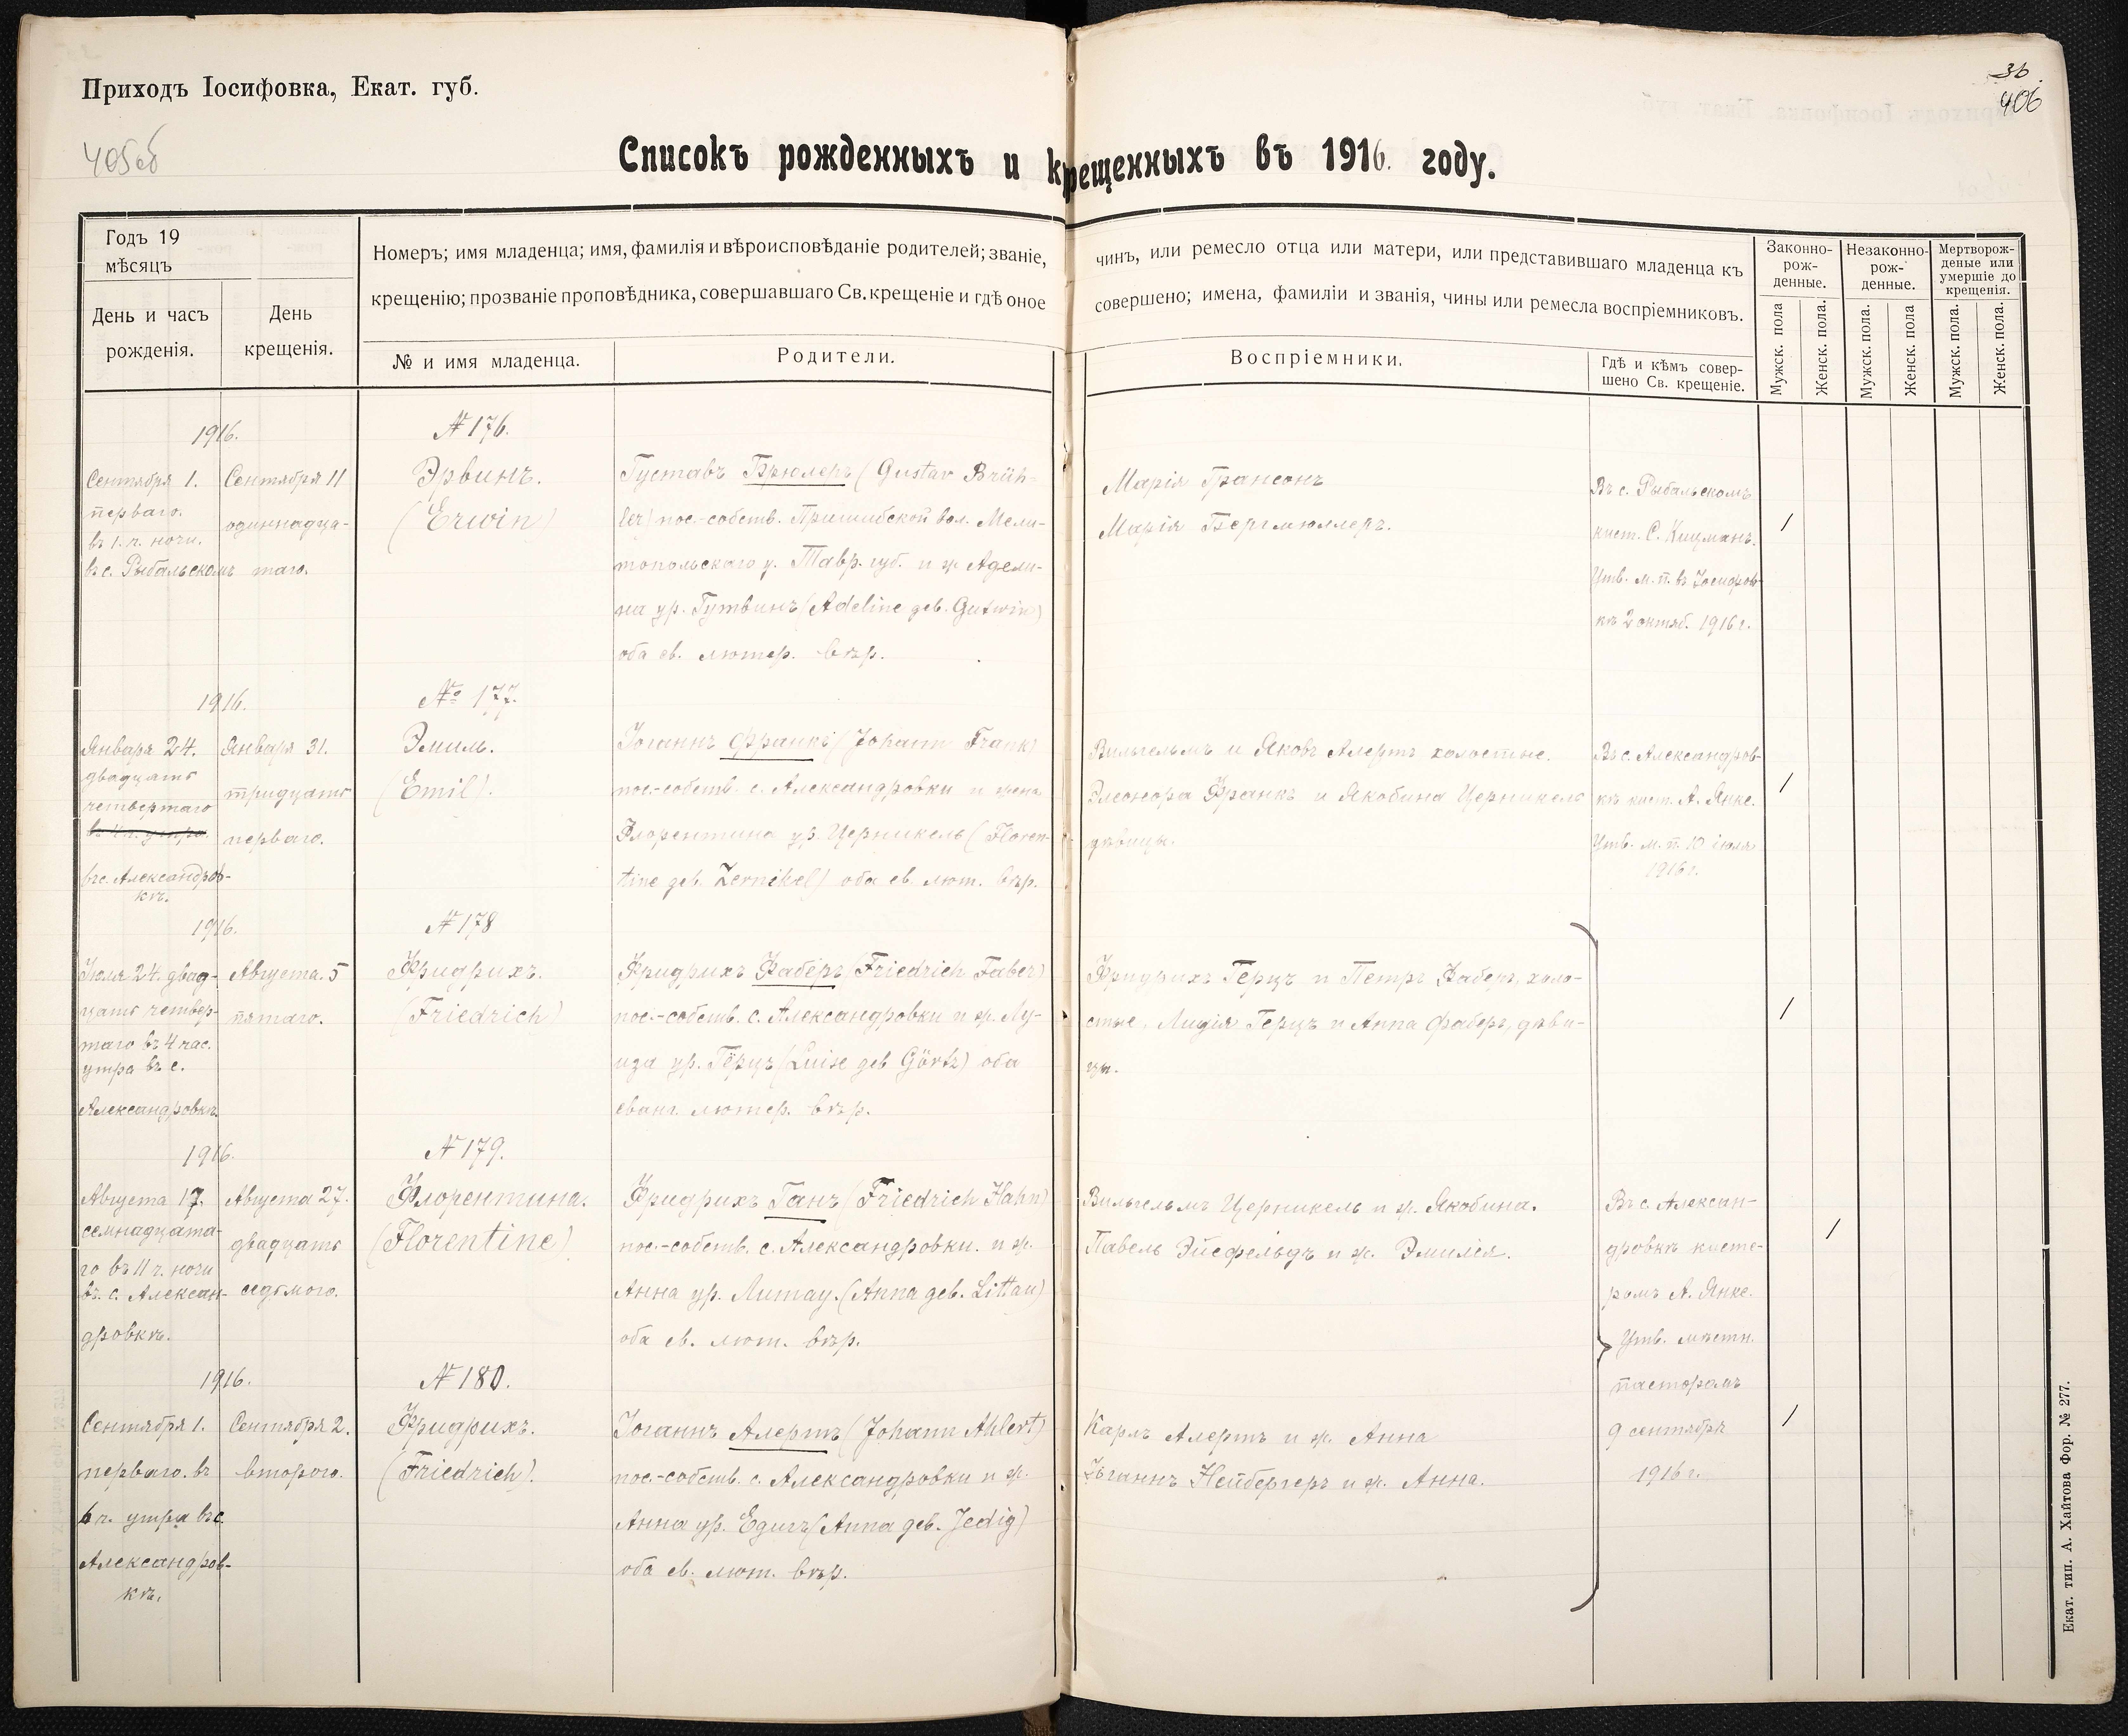 Приходъ Іосифовка, Екат. губ.
36
406
405об
Списокъ рожденныхъ и крещенныхъ въ 1916. году.
Годъ 19
мѣсяцъ
День и часъ
рожденія.
День
крещенія.
Номеръ; имя младенца; имя, фамилія и вѣроисповѣданіе родителей; званіе,
крещенію; прозваніе проповѣдника, совершавшаго Св. крещеніе и гдѣ оное
№ и имя младенца.
Родители.
чинъ, или ремесло отца или матери, или представившаго младенца къ
совершено; имена, фамиліи и званія, чины или ремесла воспріемниковъ.
Воспріемники.
Гдѣ и кѣмъ совер-
шено Св. крещеніе.
Законно-
рож-
денные.
Незаконно-
рож-
денные.
Мертворож-
деные или
умершіе до
крещенія.
Мужск. пола
Женск. пола.
Мужск. пола.
Женск. пола
Мужск. пола.
Женск. пола.
1916.
Сентября 1.
перваго.
въ 1. ч. ночи.
въ с. Рыбальскомъ
Сентября 11
одиннадца-
таго.
№ 176.
Эрвинъ.
(Erwin)
Густавъ Брюлеръ (Gustav Brüh-
ler) пос.-собств. Пришибской вол. Мели-
топольскаго у. Тавр. губ. и ж. Адели-
на ур. Гутвинъ (Adeline geb. Gutwin)
оба ев. лютер. вѣр.
Марія Грансонъ
Марія Бергмюллеръ.
Въ с. Рыбальскомъ
кист. С. Кицманъ.
Утв. м. п. въ Іосифов-
кѣ 2 октяб. 1916 г.
/
1916.
Января 24.
двадцать
четвертаго
въ с. Александров-
кѣ.
Января 31.
тридцать
перваго.
№ 177.
Эмиль.
(Emil).
Іоганнъ Франкъ (Johann Frank)
пос.-собств. с. Александровки и жена
Флорентина ур. Церникель (Floren-
tine geb. Zernikel) оба ев. лют. вѣр.
Вильгельмъ и Яковъ Алертъ холостые.
Элеонора Франкъ и Якобина Церникель
дѣвицы.
Въ с. Александров-
кѣ кист. А. Янке.
Утв. м. п. 10 іюля
1916 г.
/
1916.
Іюля 24. двад-
цать четвер-
таго въ 4 час.
утра въ с.
Александровкѣ.
Августа. 5
пятаго.
№ 178
Фридрихъ.
(Friedrich)
Фридрихъ Фаберъ (Friedrich Faber)
пос.-собств. с. Александровки и ж. Лу-
иза ур. Гёрцъ (Luise geb Görtz) оба
еванг. лютер. вѣр.
Фридрихъ Герцъ и Петръ Фаберъ, холо-
стые, Лидія Герцъ и Анна Фаберъ, дѣви-
цы.
/
1916.
Августа 17.
семнадцата-
го въ 11 ч. ночи
въ с. Алексан-
дровкѣ.
Августа 27.
двадцать
седьмого.
№ 179.
Флорентина.
(Florentine)
Фридрихъ Ганъ (Friedrich Hahn)
пос.-собств. с. Александровки. и ж.
Анна ур. Литау. (Anna geb. Littau)
оба ев. лют. вѣр.
Вильгельмъ Церникель и ж. Якобина.
Павелъ Эйсфельдъ и ж. Эмилія.
Въ с. Алексан-
дровкѣ кисте-
ромъ А. Янке.
Утв. мѣстн.
пасторомъ
9 сентября
1916 г.
/
1916.
Сентября 1.
перваго. въ
6 ч. утра въ с
Александров-
кѣ.
Сентября 2.
второго.
№ 180.
Фридрихъ.
(Friedrich).
Іоганнъ Алертъ (Johann Ahlert)
пос.-собств. с. Александровки и ж.
Анна ур. Едигъ (Anna geb. Jedig)
оба ев. лют. вѣр.
Карлъ Алертъ и ж. Анна
Іоганнъ Нейбергеръ и ж. Анна.
/
Екат. тип. А. Хайтова Фор. № 277.